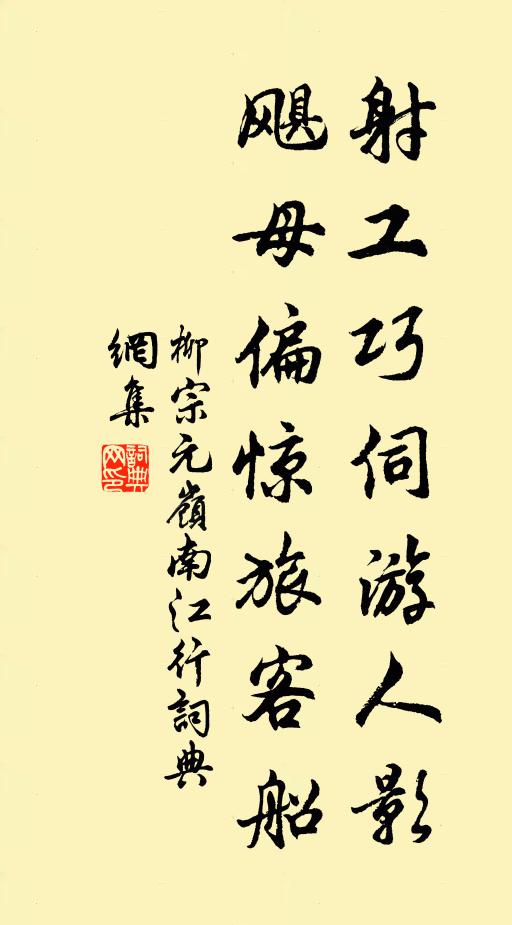 射工巧伺游人影
飓母偏惊旅客船
柳宗元嶺南江行詞典
網集
詞典
网印